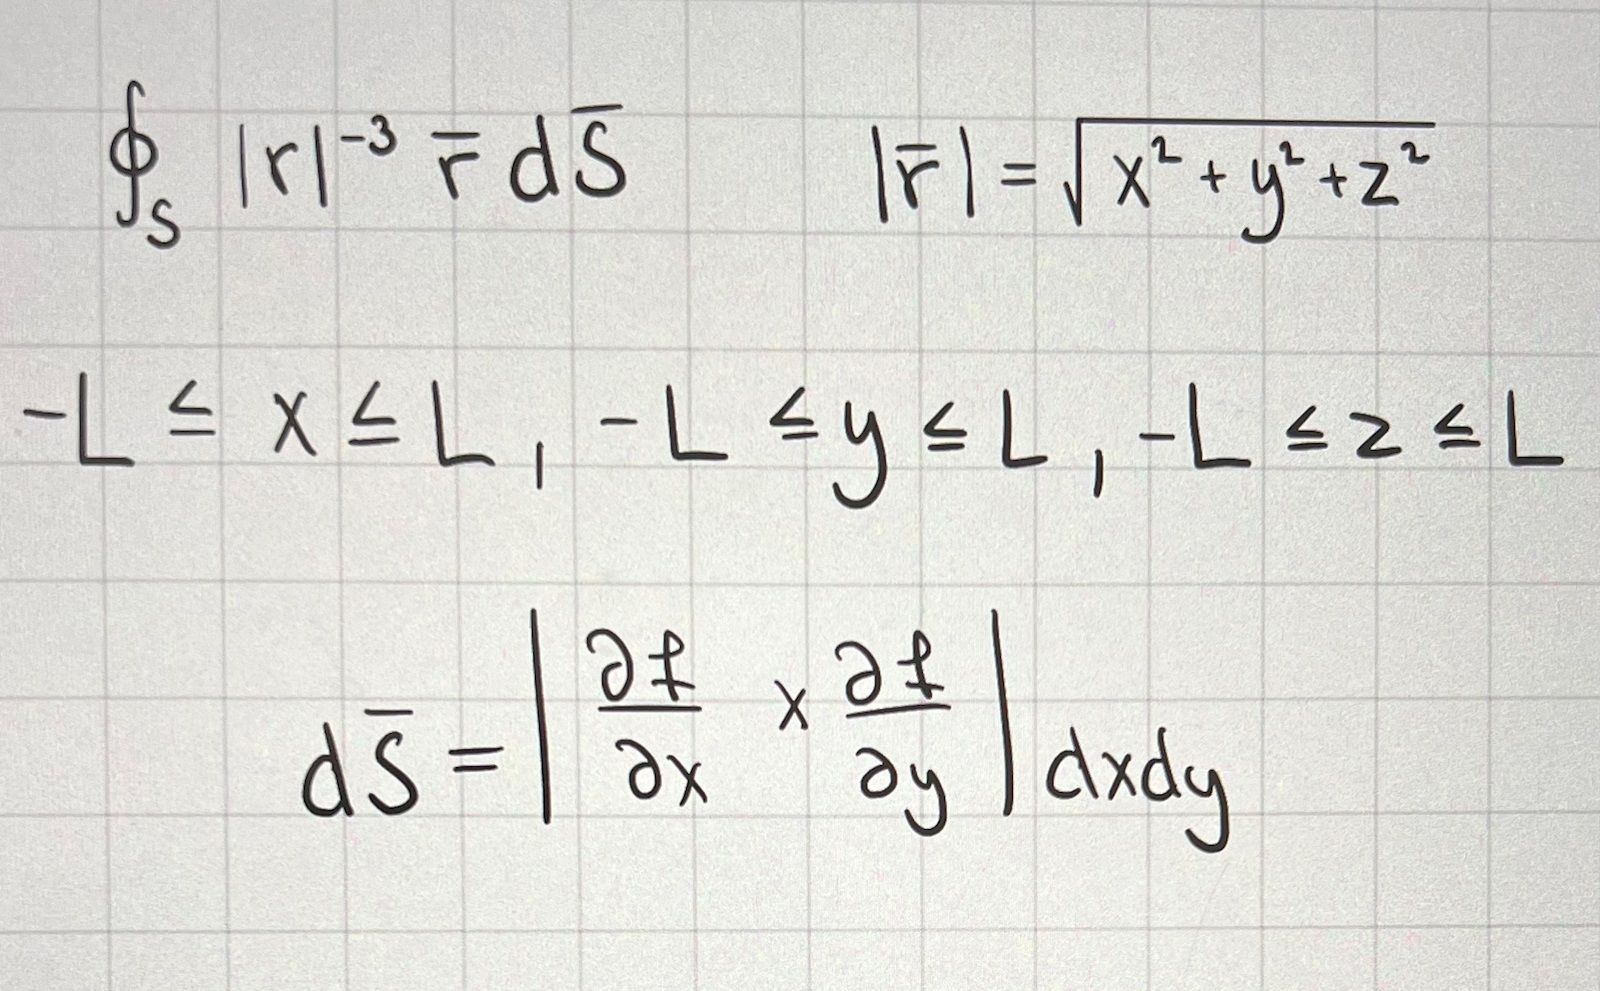 ∮_S |r|⁻³ r̄ dS̄    |r̄| = √(x² + y² + z²)
-L ≤ x ≤ L, -L ≤ y ≤ L, -L ≤ z ≤ L
dS̄ = | ∂f/∂x × ∂f/∂y | dxdy